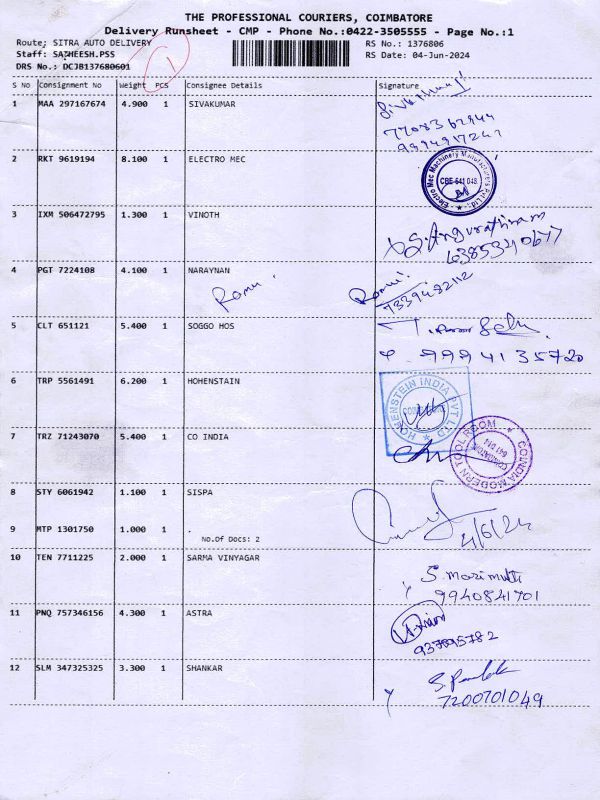 THE PROFESSIONAL COURIERS, COIMBATORE
Delivery Runsheet - CMP - Phone No.:0422-3505555 - Page No.:1
Route: SITRA AUTO DELIVERY
RS No.: 1376806
Staff: SATHEESH.PSS
RS Date: 04-Jun-2024
DRS No.: DCJB137680601
1
S No Consignment No Weight PCS Consignee Details Signature
1 MAA 297167674 4.900 1 SIVAKUMAR
9994997242
2 RKT 9619194 8.100 1 ELECTRO MEC
Electro Mec Machinery Manufacturers Pvt Ltd.
CBE-641 048
3 IXM 506472795 1.300 1 VINOTH
6385340677
4 PGT 7224108 4.100 1 NARAYNAN
Ramu. Ramu.
7339482112
5 CLT 651121 5.400 1 SOGGO HOS
9994135720
6 TRP 5561491 6.200 1 HOHENSTAIN
HOHENSTEIN INDIA PVT LTD
7 TRZ 71243070 5.400 1 CO INDIA
COINDIA MODERN TOOL ROOM
8 STY 6061942 1.100 1 SISPA
4/6/24
9 MTP 1301750 1.000 1 .
No.Of Docs: 2
10 TEN 7711225 2.000 1 SARMA VINYAGAR
S. Marimuttu
9940841701
11 PNQ 757346156 4.300 1 ASTRA
12 SLM 347325325 3.300 1 SHANKAR
7200701049